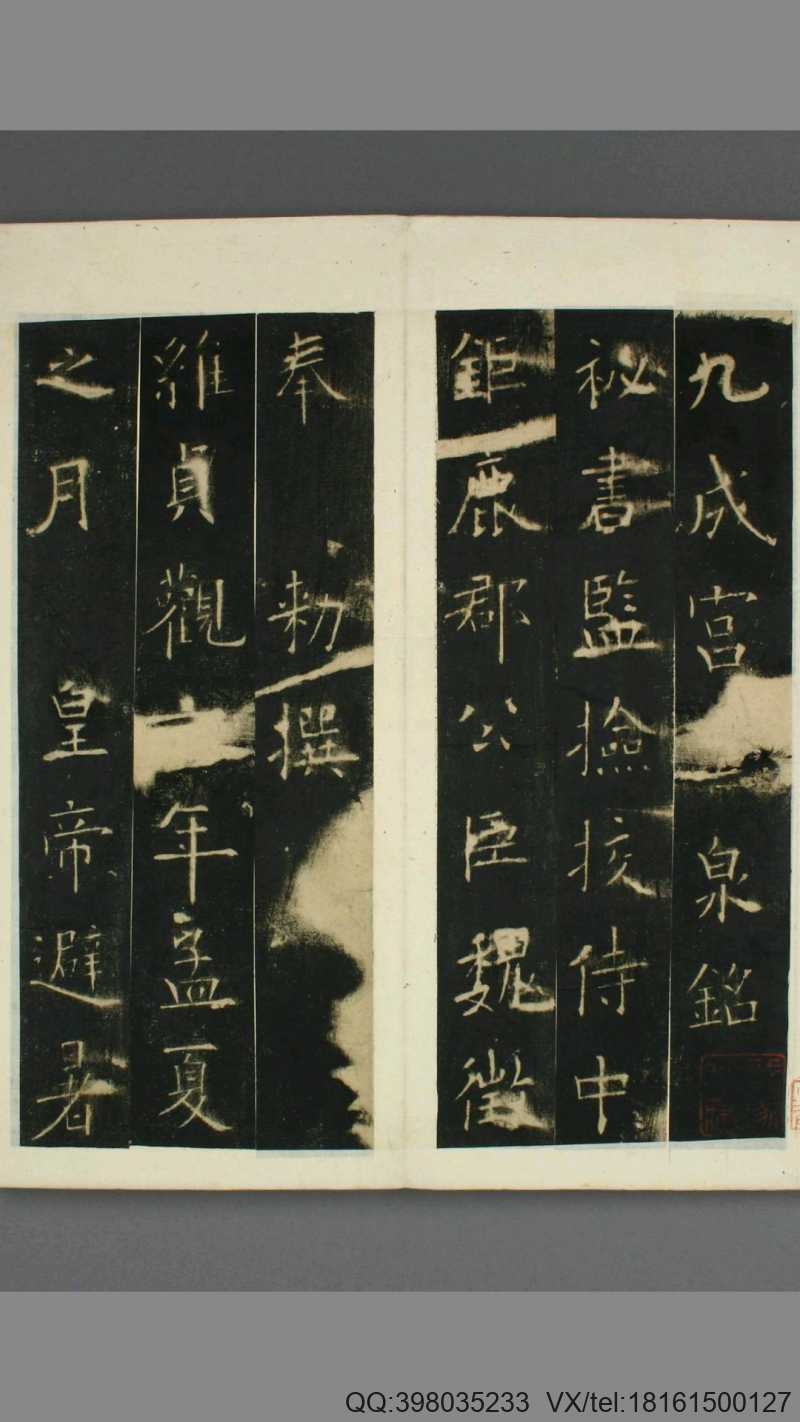 九成宮 泉銘
祕書監撿挍侍中
鉅鹿郡公臣魏徵
奉 勑撰
維貞觀六年孟夏
之月 皇帝避暑
QQ:398035233 VX/tel:18161500127